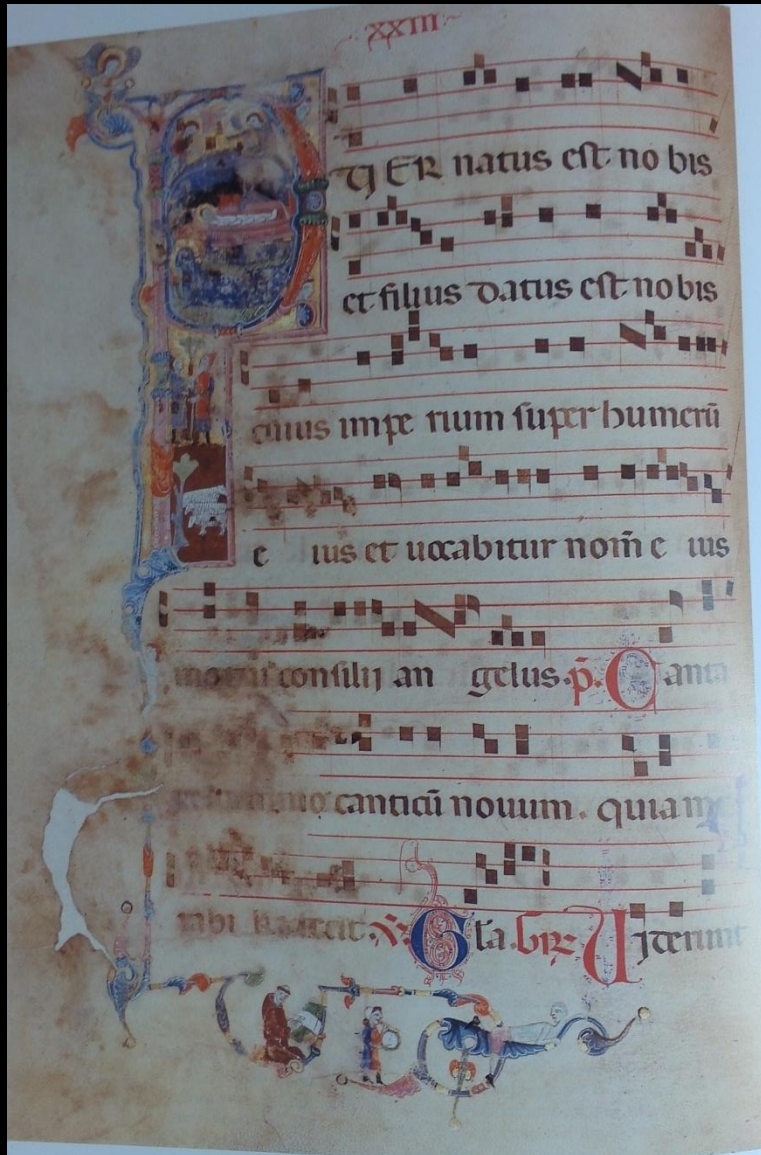 XXIII
PUER natus est no bis
et filius datus est nobis
cuius impe rium super humerū
e ius et uocabitur nom̄ e ius
consilij an gelus. p̄. Canta
canticū nouum. quia m
rabi fecit. V̄. Gl̄a. Gr̄. Uiderunt